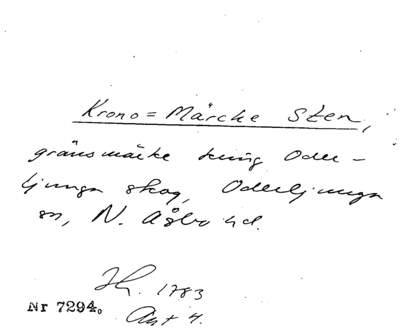 Krono=Märcke Sten,
gränsmärke kring Oder-
ljunga skog, Oderljunga
sn, N. Åsbo hd.
1783
Akt 4.
Nr 7294.